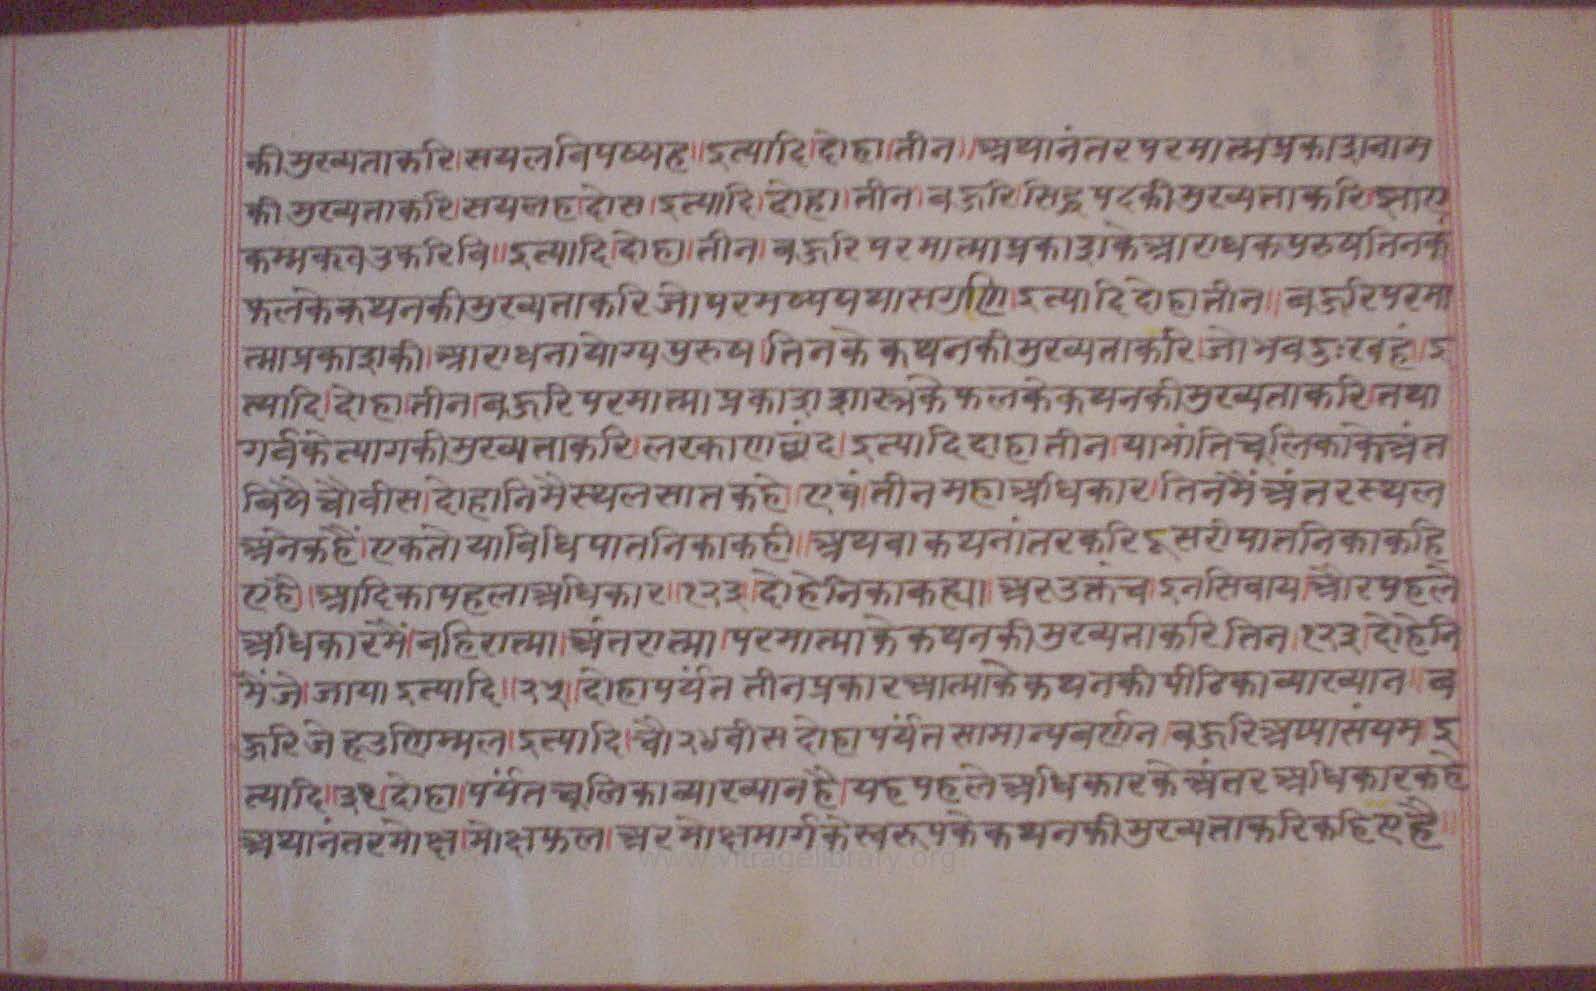 की मुख्यताकरि।सयलविपप्पह॥इत्यादि।दोहा।तीन॥अथानंतर परमात्मप्रकाशनाम
की मुख्यताकरि।सयलहदोस।इत्यादि।दोहा।तीन।बऊरि।सिद्धपदकी मुख्यताकरि।झाएं
कम्मकवउकरिवि॥इत्यादि।दोहा।तीन।बऊरि परमात्माप्रकाशके आराधकपुरुषतिनके
फलके कथनकी मुख्यताकरि जे।परमप्पपयासगुणि।इत्यादि दोहा तीन॥बऊरि परमा
त्माप्रकाशकी।आराधनायोग्यपुरुष।तिनके कथनकी मुख्यताकरि।जे।भवदुःखहं।इ
त्यादि।दोहा।तीन।बऊरि परमात्माप्रकाशशास्त्रके फलके कथनकी मुख्यताकरि।तथा
गर्वके त्यागकी मुख्यताकरि।लरकाणछंद।इत्यादि दोहा तीन।याभांति चूलिकाके अंत
विषै चौवीस।दोहानिमै स्थल सात कहे।एवं।तीन महाअधिकार।तिनमैं अंतरस्थल
अनेक हैं।एकतो या विधि पातनिका कही॥अथवा कथनांतरकरि दूसरी पातनिका कहि
एहै।आदिका पहला अधिकार।१२३।दोहेनिका कह्या॥अर उक्तंच इनसिवाय।और पहले
अधिकारमैं।बहिरात्मा।अंतरात्मा।परमात्माके कथनकी मुख्यताकरि तिन।१२३।दोहेनि
मैं जे।जाया इत्यादि।२५।दोहापर्यंत तीनप्रकार आत्माके कथनकी पीठिकाव्याख्यान॥ब
ऊरि जेहउणिम्मल।इत्यादि।चौ२४वीस दोहा पर्यंत सामान्यवर्णन।बऊरि अप्पासंयम इ
त्यादि।३१।दोहा।पर्यंत चूलिकाव्याख्यान है।यह पहले अधिकारके अंतर अधिकार कहे
अथानंतर मोक्ष।मोक्षफल।अर मोक्षमार्गके स्वरूपके कथनकी मुख्यताकरि कहिए है॥
www.vitragelibrary.org